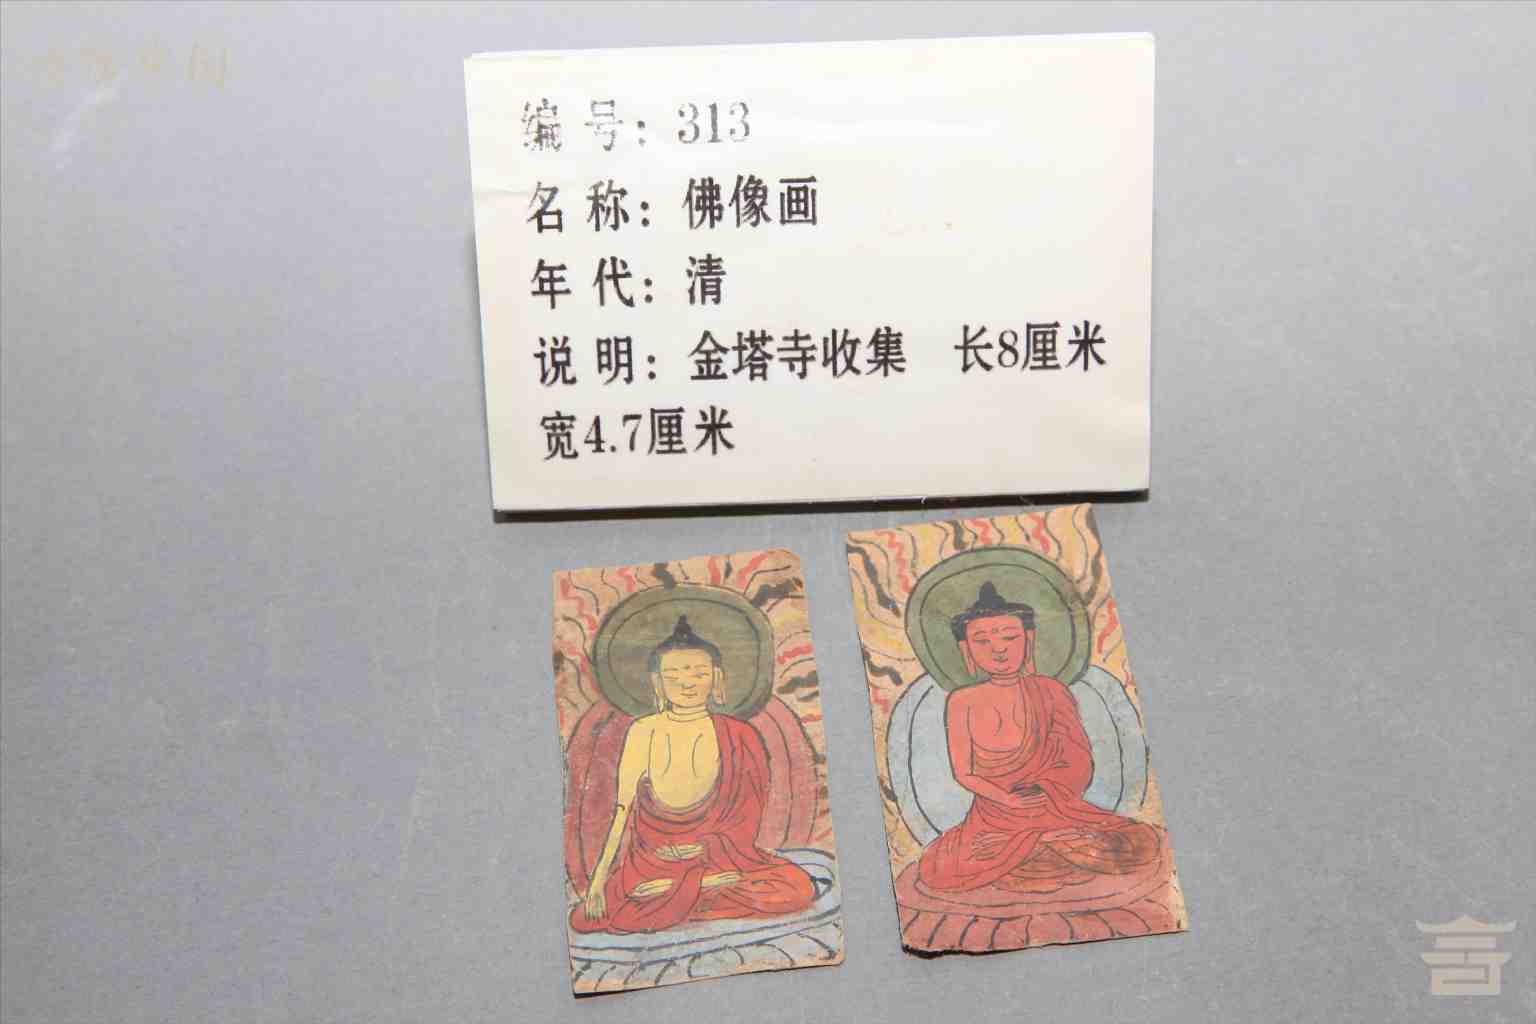 编号：313
名称：佛像画
年代：清
说明：金塔寺收集 长8厘米
宽4.7厘米